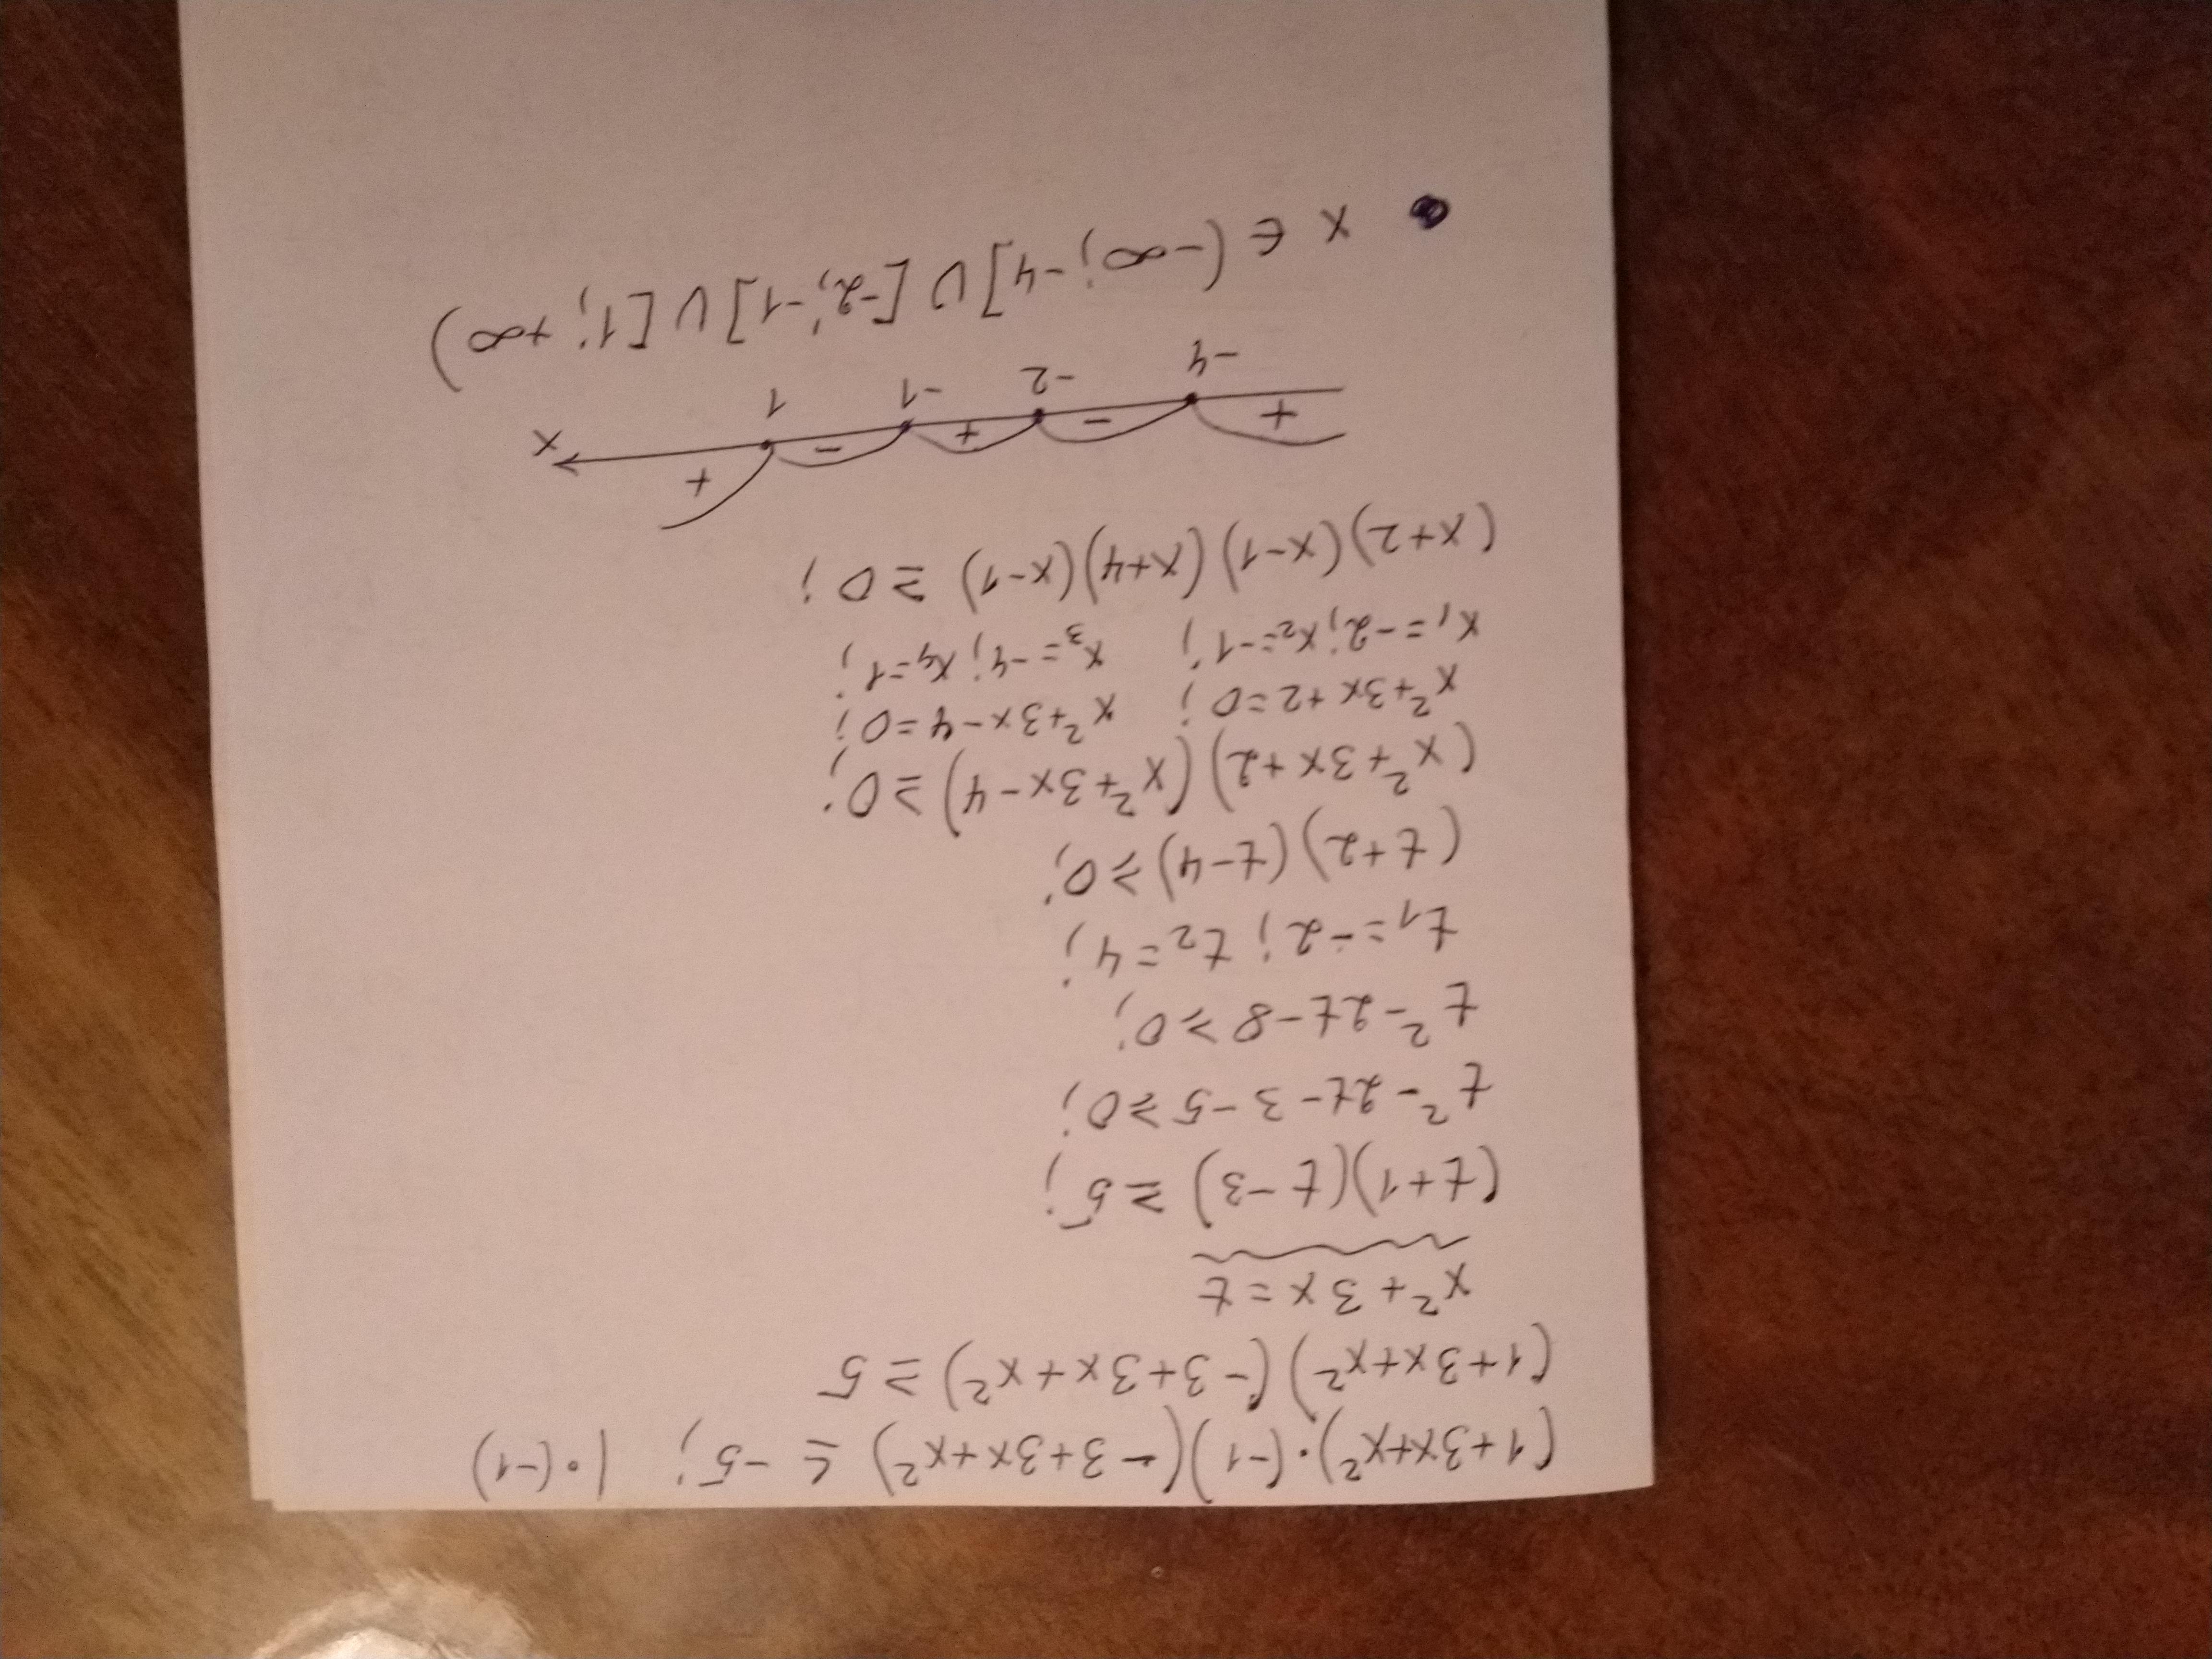 (1+3x+x²)·(-1)(-3+3x+x²) ≤ -5; |·(-1)
(1+3x+x²)(-3+3x+x²) ≥ 5
x²+3x=t
(t+1)(t-3) ≥ 5;
t²-2t-3-5≥0;
t²-2t-8≥0;
t1=-2; t2=4;
(t+2)(t-4)≥0;
(x²+3x+2)(x²+3x-4)≥0;
x²+3x+2=0; x²+3x-4=0;
x1=-2; x2=-1; x3=-4; x4=1;
(x+2)(x-1)(x+4)(x-1) ≥0;
+ - + - +
-4 -2 -1 1 x
x ∈ (-∞; -4] U [-2; -1] U [1; +∞)